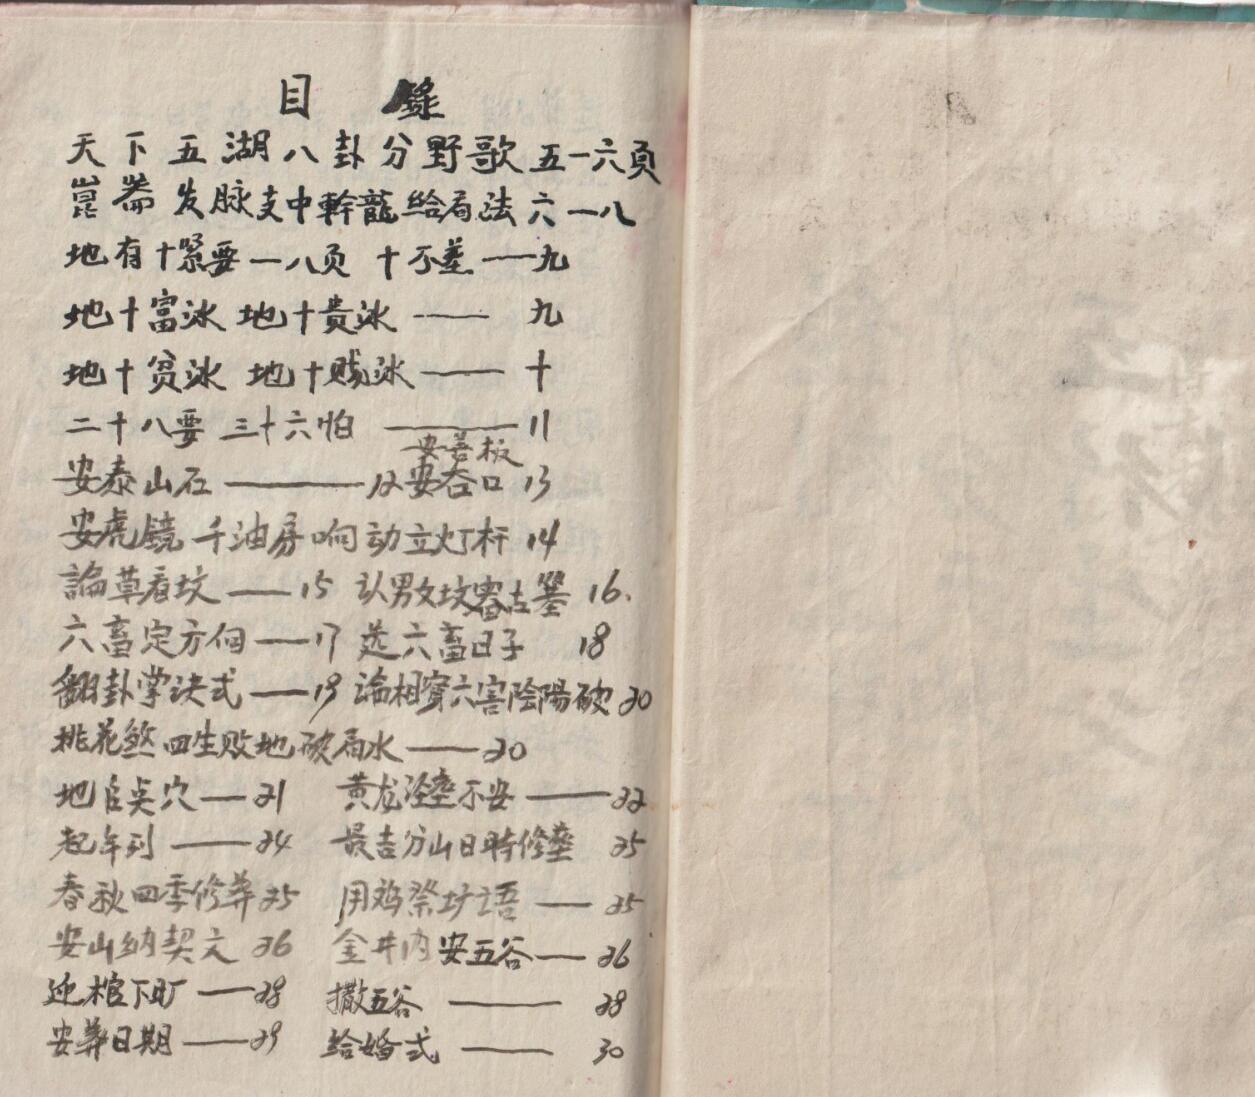 目錄
天下五湖八卦分野歌五一六頁
崑崙发脉支中幹龍给局法六一八
地有十紧要一八页 十不差——九
地十富冰 地十贵冰—— 九
地十贫冰 地十贱冰—— 十
二十八要 三十六怕 ——11
安善板
安泰山石——12安谷口 13
安虎镜 千油房响动立灯杆 14
論草看坟——15 认男女坟 古墓 16.
六畜定方向——17 选六畜日子 18
翻卦掌决式——19 論相 六害陰陽破 20
桃花煞四生败地破局水——20
地 穴——21 黄龙 不安——22
起年列——24 最吉分山日時修 25
春秋四季修葬25 用鸡祭圹语——25
安山纳契文 26 金井内安五谷——26
迎棺下圹——28 撒五谷——28
安葬日期——29 给婚式——30